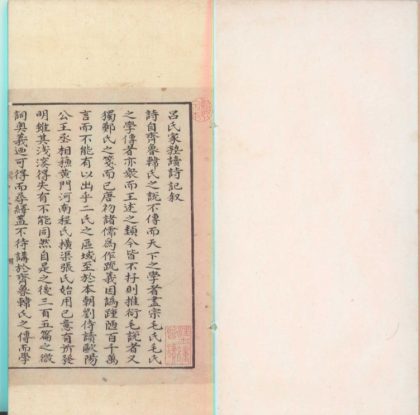 呂氏家塾讀詩記叙
詩自齊魯韓氏之說不傳而天下之學者盡宗毛氏毛氏
之學傳者亦衆而王述之類今皆不存則推衍毛說者又
獨鄭氏之箋而已唐初諸儒為作疏義因譌踵陋百千萬
言而不能有以出乎二氏之區域至於本朝劉侍讀歐陽
公王丞相蘇黃門河南程氏橫渠張氏始用己意有所發
明雖其淺深得失有不能同然自是之後三百五篇之微
詞奥義乃可得而尋繹蓋不待講於齊魯韓氏之傳而學